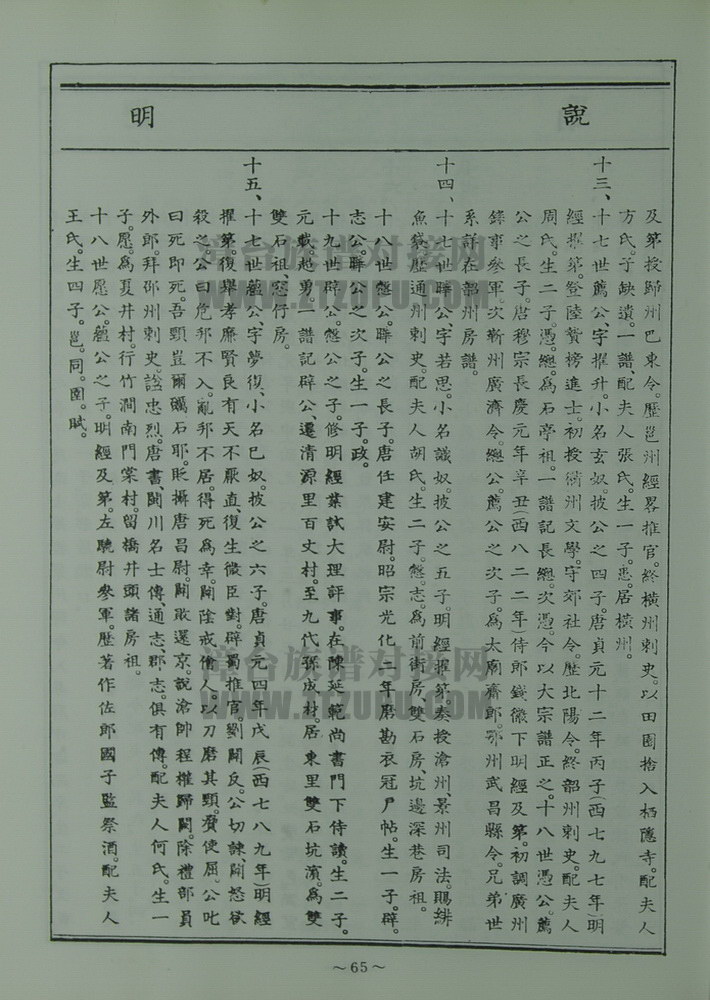 說明
及第授歸州巴東令。歷邕州經畧推官。終橫州刺史。以田園捨入栖隱寺。配夫人
方氏。子缺遺。一譜、配夫人張氏。生一子。惎。居橫州。
十三、十七世薦公、字擢升。小名玄奴。披公之四子。唐貞元十二年丙子(西七九七年)明
經擢第。登陸贄榜進士。初授衢州文學。守郊社令。歷北陽令。終韶州刺史。配夫人
周氏。生二子。憑。總。為石亭祖。一譜記長總。次憑。今以大宗譜正之。十八世憑公。薦
公之長子。唐穆宗長慶元年辛丑(西八二二年)侍郎錢徽下明經及第。初調廣州
錄事參軍。次蘄州廣濟令。總公、薦公之次子。為太廟齋郎。鄂州武昌縣令。兄弟世
系詳在韶州房譜。
十四、十七世曄公、字若思。小名議奴。披公之五子。明經擢第。奏授滄州、景州司法。賜緋
魚袋。歷通州刺史。配夫人胡氏。生二子。慇。志。為前街房、雙石房、坑邊深巷房祖。
十八世慇公、曄公之長子。唐任建安尉。昭宗光化二年磨勘衣冠戶帖。生一子。辟。
志公。曄公之次子。生一子。政。
十九世辟公。慇公之子。修明經業。試大理評事。在陳延範尚書門下侍讀。生二子。
元載。越勇。一譜記辟公、遷清源里百丈村。至九代孫成材。居東里雙石坑濱。為雙
雙石祖、窑仔房。
十五、十七世蘊公、字夢復、小名巴奴。披公之六子。唐貞元四年戊辰(西七八九年)明經
擢第。復舉孝廉賢良有天不厭直、復生微臣對。辟蜀推官。劉闢反。公切諫。闢怒欲
殺之。公曰危邦不入。亂邦不居。得死為幸。闢陰戒儈人。以刀磨其頸。脅使屈。公叱
曰死即死。吾頸豈爾礪石耶。貶攝唐昌尉。闢敗還京。說滄帥程權歸闕。除禮部員
外郎。拜邵州刺史。諡忠烈。唐書、閩川名士傳、通志、郡志。俱有傳。配夫人何氏。生一
子。愿。為夏井村。行竹澗南門棠村。留橋井頭諸房祖。
十八世愿公。蘊公之子。明經及第。左驍尉參軍。歷著作佐郎國子監祭酒。配夫人
王氏。生四子。邕。同。圄。賦。
漳台族谱对接网
WWW.ZTZUPU.COM
漳台族谱对接网
WWW.ZTZUPU.COM
～65～